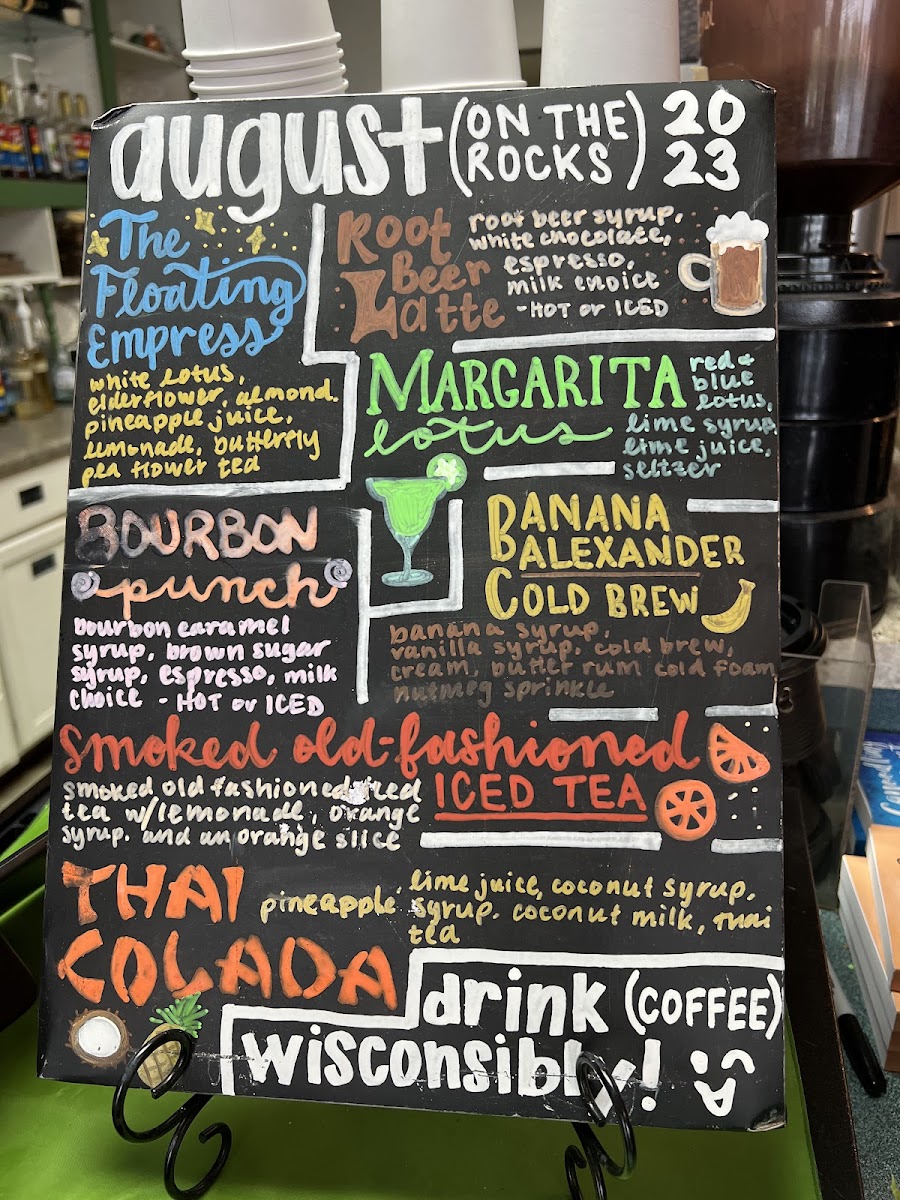 august (ON THE ROCKS) 2023
The
Floating
Empress
white lotus,
elderflower, almond,
pineapple juice,
lemonade, butterfly
pea flower tea
Root
Beer
Latte
root beer syrup,
white chocolate,
espresso,
milk choice
-HOT or ICED
MARGARITA
lotus
red &
blue
lotus,
lime syrup
lime juice,
seltzer
BOURBON
punch
bourbon caramel
syrup, brown sugar
syrup, espresso, milk
choice - HOT or ICED
BANANA
BALEXANDER
COLD BREW
banana syrup,
vanilla syrup, cold brew,
cream, butter rum cold foam
nutmeg sprinkle
smoked old-fashioned
ICED TEA
smoked old fashioned iced
tea w/lemonade, orange
syrup. and an orange slice
THAI
COLADA
pineapple, lime juice, coconut syrup,
syrup. coconut milk, THAI
tea
drink (COFFEE)
wisconsibly!